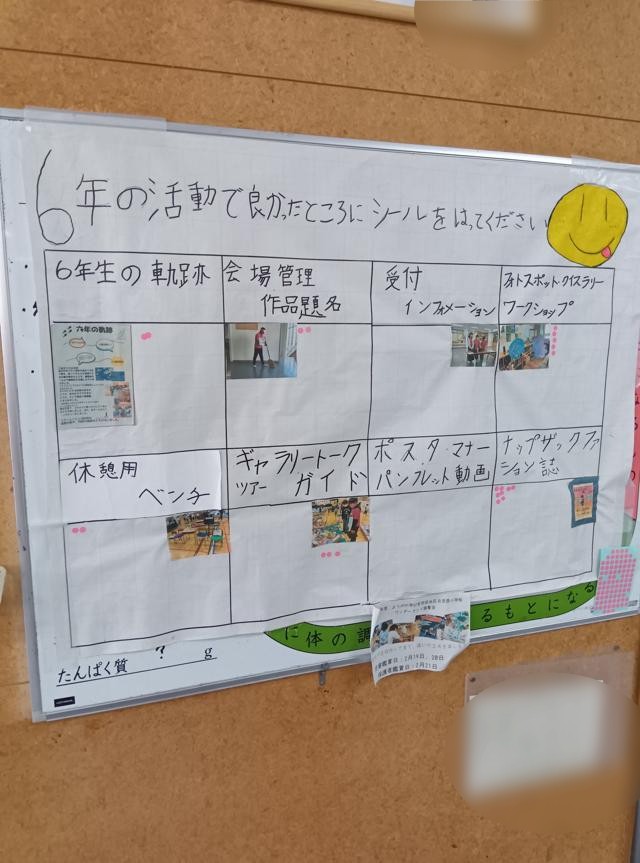 6年の活動で良かったところにシールをはってください
6年生の軌跡
会場管理
作品題名
受付
インフォメーション
フォトスポット・クイズラリー
ワークショップ
六年の軌跡
休憩用
ベンチ
ギャラリートーク
ツアー ガイド
ポスター・マナー
パンフレット動画
ナップザックファッ
ション誌
に体の調
るもとになる
たんぱく質 ? g
鑑賞日：2月19日、20日
鑑賞日：2月21日